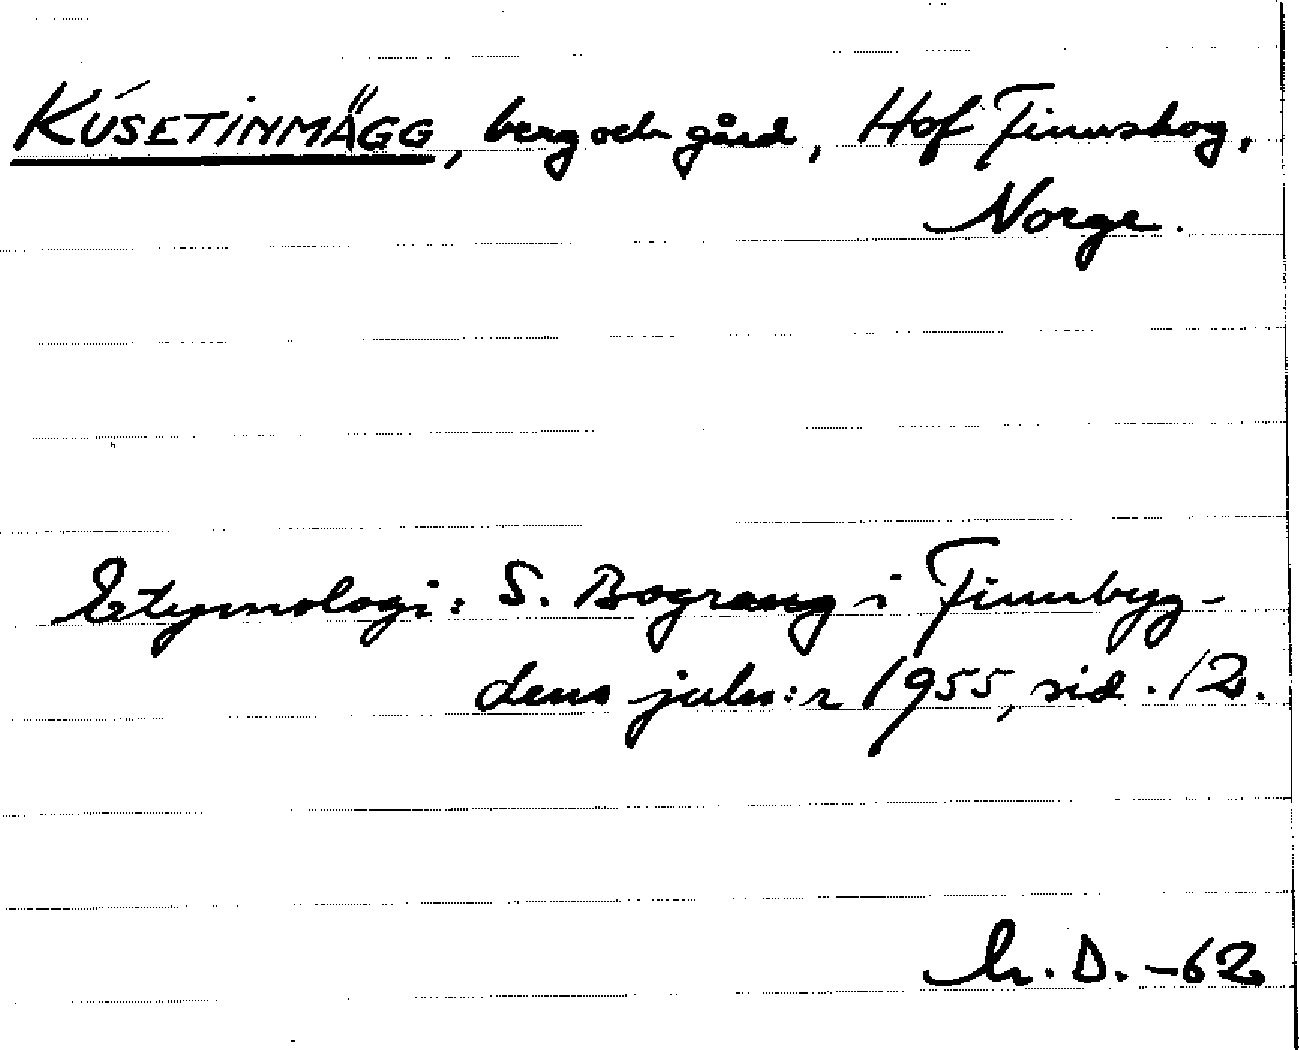 KÚSETINMÄGG, berg och gård, Hof Finnskog,
Norge.
Etymologi: S. Bograng i Finnbyg-
dens juln:r 1955, sid. 12.
h. D. -62